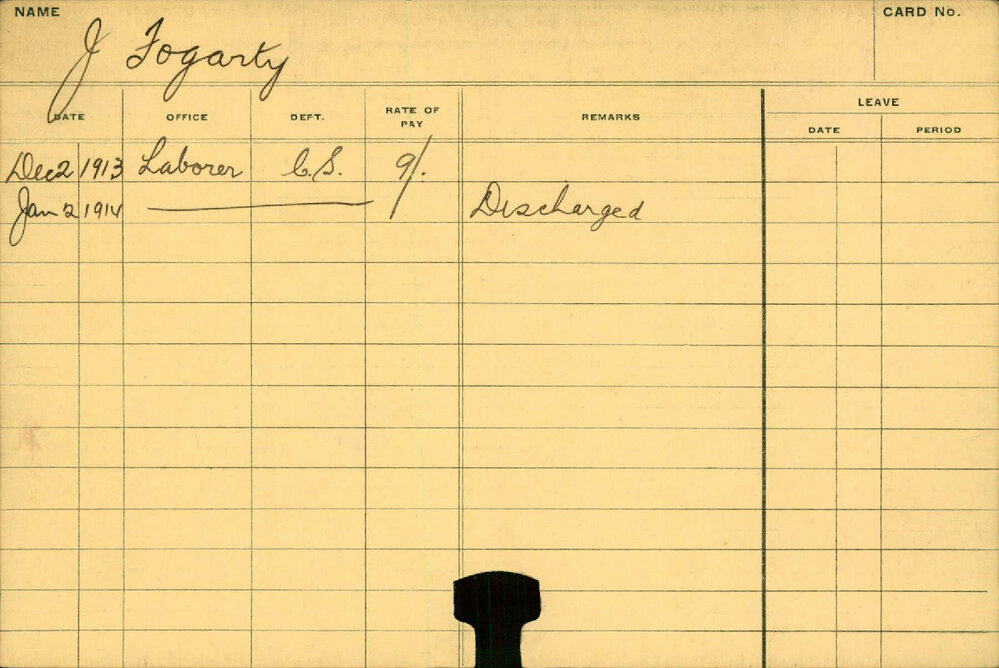 NAME
CARD No.
J Fogarty
DATE OFFICE DEPT. RATE OF PAY REMARKS LEAVE
DATE PERIOD
Dec 2 1913 Laborer C.S. 9/.
Jan 2 1914 Discharged